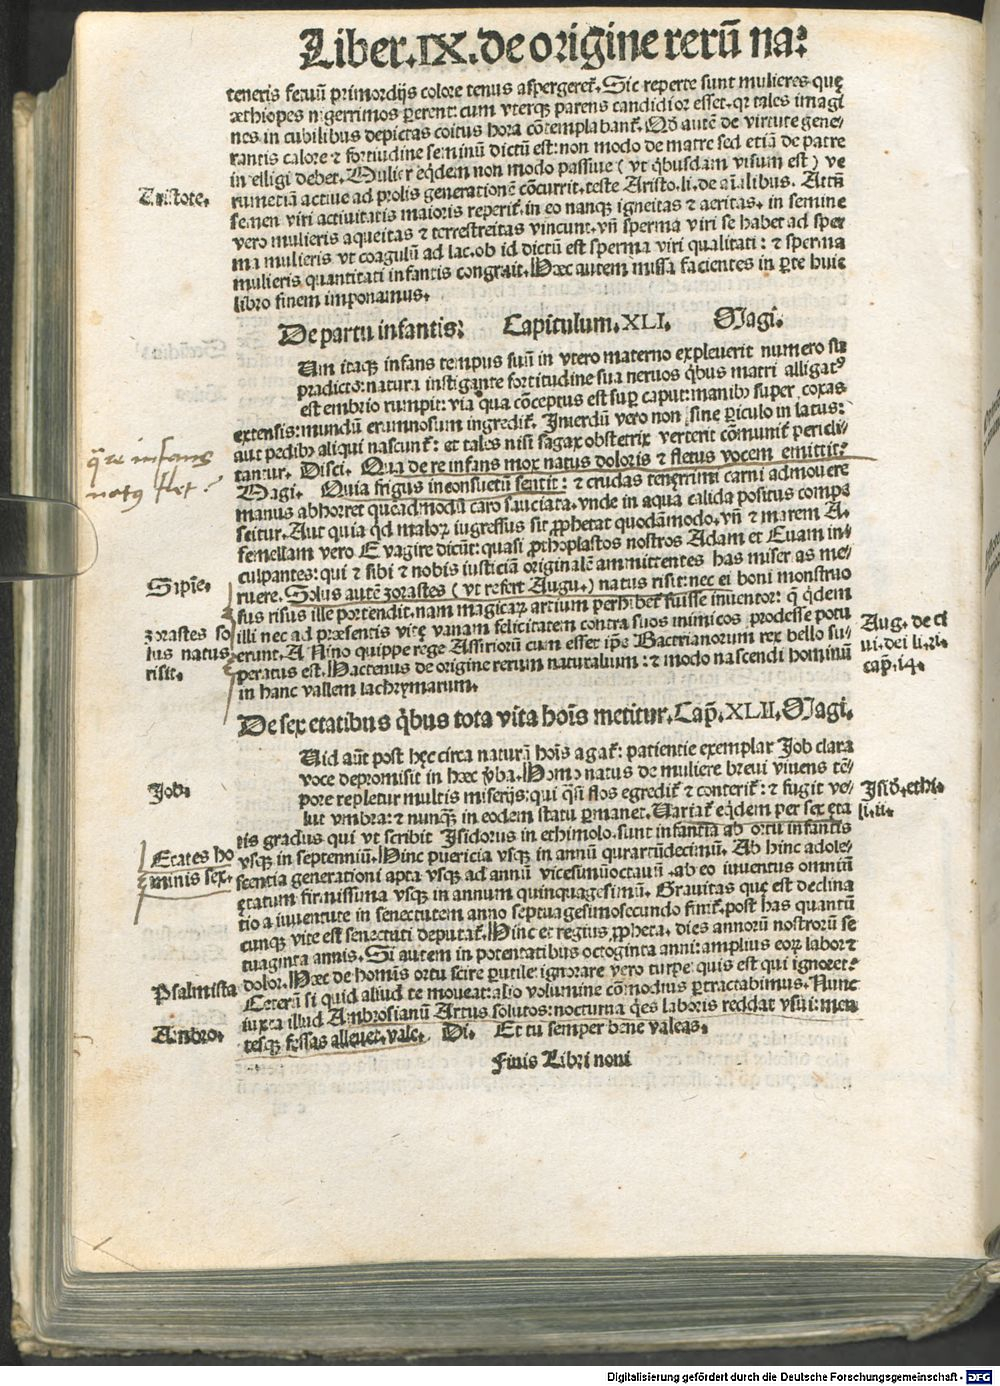 Liber.IX.de origine rerū na:
teneris fetuū primordijs colore tenus aspergeret̄. Sic reperte sunt mulieres quę
æthiopes nigerrimos peperent: cum vterqȝ parens candidior esset. qꝛ tales imagi
nes in cubilibus depictas coitus hora cōtemplabant̄. Qđ autē de virtute gene-
rantis calore ⁊ fortitudine seminū dictū est: non modo de matre sed etiā de patre
intelligi debet. Mulier eqdem non modo passiue (vt qbusdam visum est) ve
rumetiā actiue ad prolis generationē cōcurrit. teste Aristo. li. de aīalibus. Attn̄
semen viri actiuitatis maioris reperit̄. in eo nanqȝ igneitas ⁊ aeritas. in semine
vero mulieris aqueitas ⁊ terrestreitas vincunt. vn̄ sperma viri se habet ad sper
ma mulieris vt coagulū ad lac. ob id dictū est sperma viri qualitati: ⁊ sperma
mulieris quantitati infantis congruit. Hæc autem missa facientes in ꝑte huic
libro finem imponamus.
Aristote.
De partu infantis: Capitulum.XLI. Magi.
Um itaqȝ infans tempus suū in vtero materno expleuerit numero su
pradicto: natura instigante fortitudine sua neruos qbus matri alligatꝰ
est embrio rumpit: via qua cōceptus est suꝑ caput: manibꝰ super coxas
extensis: mundū erumnosum ingredit̄. Interdū vero non sine ꝑiculo in latus:
aut pedibꝰ aliqui nascunt̄: et tales nisi sagax obstetrix verterit cōmunit̄ pericli-
tantur. Disci. Qua de re infans mox natus doloris ⁊ fletus vocem emittit?
Magi. Quia frigus inconsuetū sentit: ⁊ crudas tenęrrimi carni admouere
manus abhorret quēadmodū caro sauciata. vnde in aqua calida positus compe
scitur. Aut quia qd maloꝝ ingressus sit ꝓphetat quodāmodo. vn̄ ⁊ marem A.
femellam vero E vagire dicūt: quasi ꝓthoplastos nostros Adam et Euam in-
culpantes: qui ⁊ sibi ⁊ nobis iusticiā originalē ammittentes has miserias me-
ruere. Solus autē zorastes (vt refert Augu.) natus risit: nec ei boni monstruo
sus risus ille portendit. nam magicaꝝ artium perhibet̄ fuisse inuentor: q qdem
illi nec ad præsentis vitę vanam felicitatem contra suos inimicos prodesse potu
erunt. A Nino quippe rege Assirioꝝ cum esset ip̄e Bactrianorum rex bello su-
peratus est. Hactenus de origine rerum naturalium: ⁊ modo nascendi hominū
in hanc vallem lachrymarum.
qͣre infans
natꝰ flet?
Sipīe.
zorastes so
lus natus
risit.
Aug. de ci
ui. dei li. xi.
cap. 14.
De sex etatibus qbus tota vita hoīs metitur. Cap. XLII. Magi.
Uid aūt post hęc circa naturā hoīs agat̄: patientie exemplar Job clara
voce depromisit in hæc v̄ba. Homo natus de muliere breui viuens tē-
pore repletur multis miserijs: qui qsi flos egredit̄ ⁊ conterit̄: ⁊ fugit ve-
lut vmbra: ⁊ nunqȝ in eodem statu permanet. Variat̄ eqdem per sex ęta
tis gradus qui vt scribit Isidorus in ethimolo. sunt infantia ab ortu infantis
vsqȝ in septenniū. Hinc puericia vsqȝ in annū quartūdecimū. Ab hinc adole-
scentia generationi apta vsqȝ ad annū vicesimūoctauū. ab eo iuuentus omniū
ętatum firmissima vsqȝ in annum quinquagesimū. Grauitas quę est declina
tio a iuuentute in senectutem anno septuagesimosecundo finit̄. post has quantū
cunqȝ vite est senectuti deputat̄. Hinc et regius ꝓpheta. dies annorū nostrorū se
ptuaginta annis. Si autem in potentatibus octoginta anni: amplius eoꝝ labor ⁊
dolor. Hæc de hominis ortu scire ꝑutile: ignorare vero turpe: quis est qui ignoret?
Ceterū si quid aliud te moueat: alio volumine cōmodius ꝑtractabimus. Nunc
iuxta illud Ambrosianū Artus solutos: nocturna qes laboris reddat vsui: men
tesqȝ fessas alleuet. vale. Di. Et tu semper bene valeas.
Finis Libri noni
Job.
Isid. ethi.
li. ii.
Etates ho
minis sex.
Psalmista
Ambro.
Digitalisierung gefördert durch die Deutsche Forschungsgemeinschaft - DFG